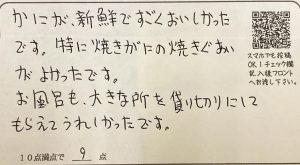 かにが、新鮮ですごくおいしかった
です。特に焼きがにの焼きぐあい
がよかったです。
お風呂も、大きな所を貸り切りにして
もらえてうれしかったです。
10点満点で 9 点
スマホでも投稿
OK！チェック欄
記入後フロント
へお渡し下さい。